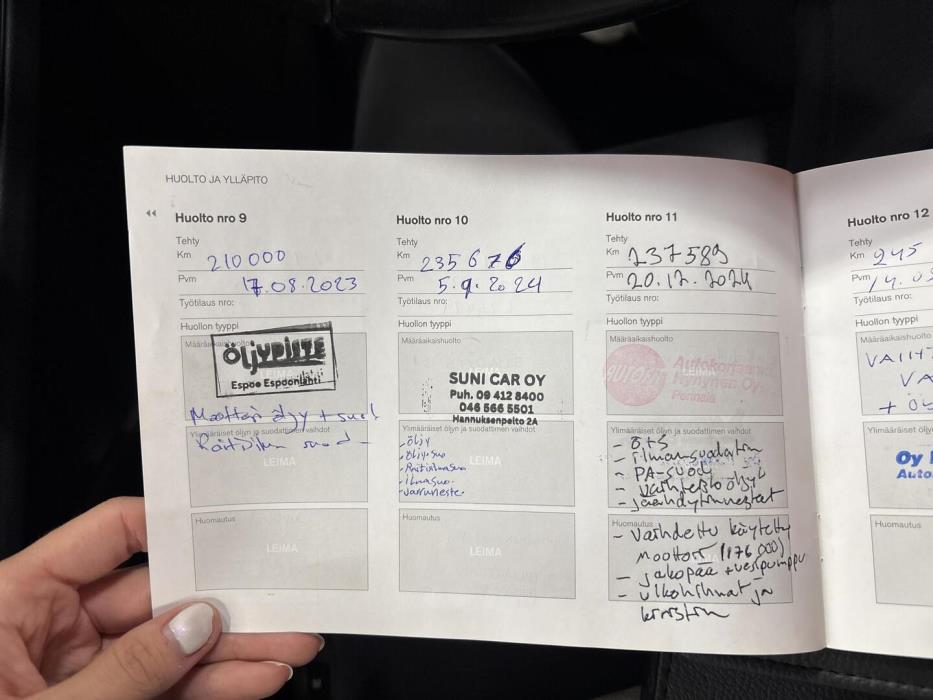 HUOLTO JA YLLÄPITO
Huolto nro 9
Tehty
Km 210000
Pvm 17.08.2023
Työtilaus nro:
Huollon tyyppi
Määräaikaishuolto
ÖLJYPISTE
LEIMA
Espoo Espoonlahti
Moottori öljy + suod
Ylimääräiset öljyn ja suodattimen vaihdot
Raitisilma suod
LEIMA
Huomautus
LEIMA
Huolto nro 10
Tehty
Km 235676
Pvm 5.9.2024
Työtilaus nro:
Huollon tyyppi
Määräaikaishuolto
SUNI CAR OY
Puh. 09 412 8400
046 566 5501
Hannuksenpelto 2A
Ylimääräiset öljyn ja suodattimen vaihdot
- öljy
- öljysuo
- Raitisilmasuo
- Ilmasuo.
- Jarruneste.
LEIMA
Huomautus
LEIMA
Huolto nro 11
Tehty
Km 237589
Pvm 20.12.2024
Työtilaus nro:
Huollon tyyppi
Määräaikaishuolto
AUTOFIT
Autokorjaamo
LEIMA
Kynynen Oy
Pernaja
Ylimääräiset öljyn ja suodattimen vaihdot
- Ö+S
- ilmansuodatin
- PA-suod
- vaihteistoöljyt
- jäähdytinnesteet
Huomautus
- Vaihdettu käytetty
moottori (176 000)
- jakopää + vesipumppu
- ulkohihnat ja
kiristin
Huolto nro 12
Tehty
Km 245
Pvm 14.05
Työtilaus nro:
Huollon tyyppi
Määräaikaishuolto
VAIHT
VA
+ ÖL
Ylimääräiset öljyn
Oy
Auto
Huomautus